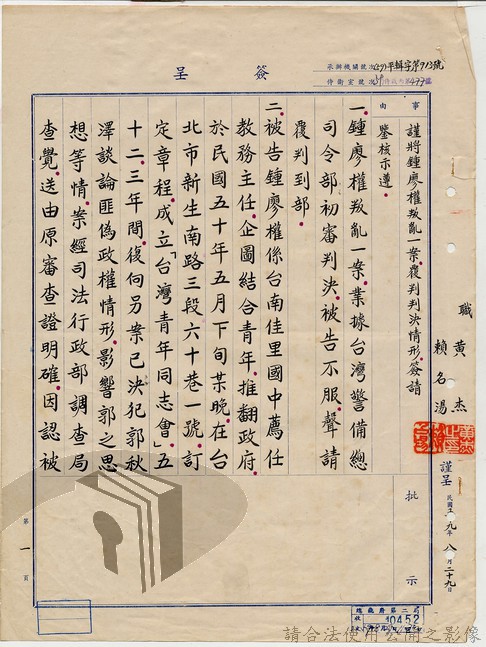 簽呈
承辦機關號次(59)平輯字第913號
侍衛室號次
事由
謹將鍾廖權叛亂一案，覆判判決情形，簽請
鑒核示遵。
職 黃杰
賴名湯
謹呈 民國五九年八月二十九日
一、鍾廖權叛亂一案，業據台灣警備總
司令部初審判決，被告不服，聲請
覆判到部。
二、被告鍾廖權係台南佳里國中薦任
教務主任，企圖結合青年，推翻政府，
於民國五十年五月下旬某晚，在台
北市新生南路三段六十巷一號訂
定章程，成立「台灣青年同志會」。五
十二、三年間，復向另案已決犯郭秋
澤談論匪偽政權情形，影響郭之思
想等情，案經司法行政部調查局
查覺，送由原審查證明確，因認被
批示
第一頁
總統府第二局
收
10452
請合法使用公開之影像